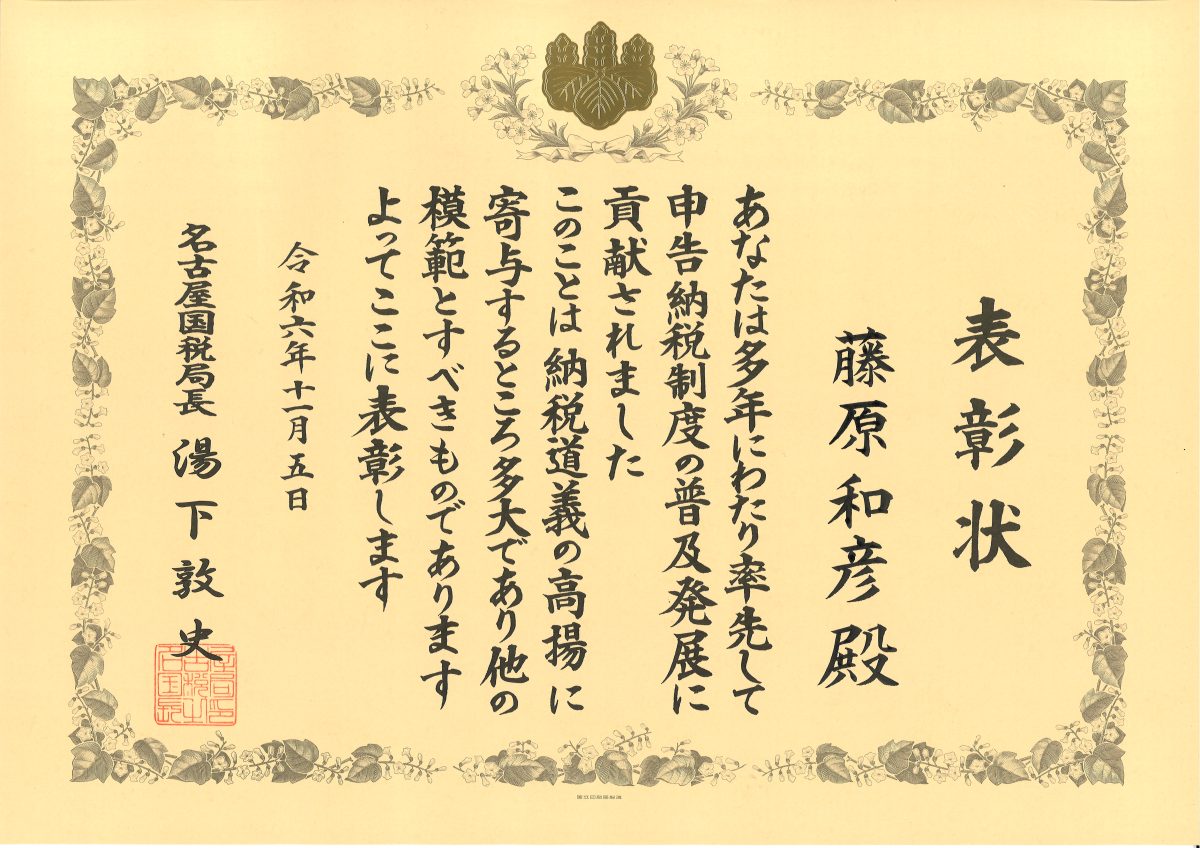 表彰状
藤原和彦殿
あなたは多年にわたり率先して
申告納税制度の普及発展に
貢献されました
このことは納税道義の高揚に
寄与するところ多大であり他の
模範とすべきものであります
よってここに表彰します
令和六年十一月五日
名古屋国税局長 湯下敦史
国立印刷局製造